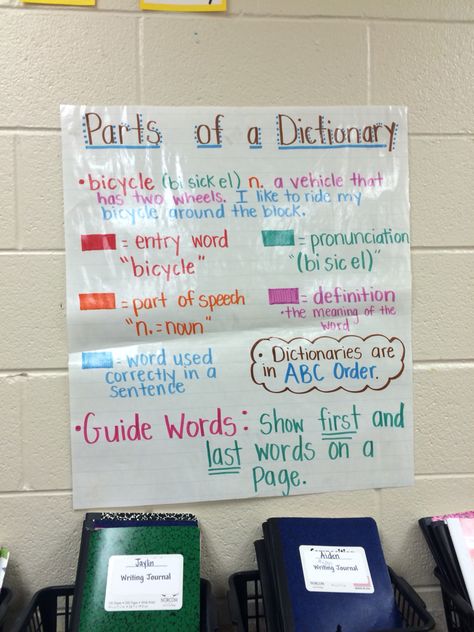 Parts of a Dictionary
•bicycle (bi sick el) n. a vehicle that
has two wheels. I like to ride my
bicycle around the block.
= entry word
"bicycle"
= pronunciation
"(bi sic el)"
= part of speech
"n. = noun"
= definition
•the meaning of the
word
= word used
correctly in a
sentence
•Dictionaries are
in ABC Order.
•Guide Words: Show first and
last words on a
page.
Jaylin
Writing Journal
Aiden
Writing Journal